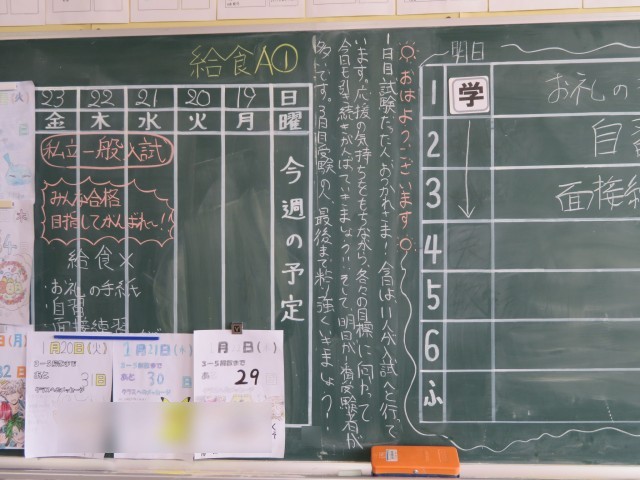 給食A①
23 22 21 20 19 日
金 木 水 火 月 曜
今週の予定
私立一般入試
みんな合格
目指してがんばれ〜!!
給食×
・お礼の手紙
・自習
・面接練習
おはようございます
1日目試験だった人、おつかれさま!今日は、11人が入試へと行って
います。応援の気持ちをもちながら、各々の目標に向かって
今日も引き続きがんばっていきましょう!!そして、明日が1番受験者が
多いです。3日目受験の人、最後まで粘り強くいきましょう!
明日
1 学 お礼の
2 自習
3 面接練
4
5
6
ふ
1月20日(火)
3〜5組卒業まで
あと 31日
クラスへのメッセージ
1月21日(水)
あと 30日
月 日( )
3〜5組卒業まで
29